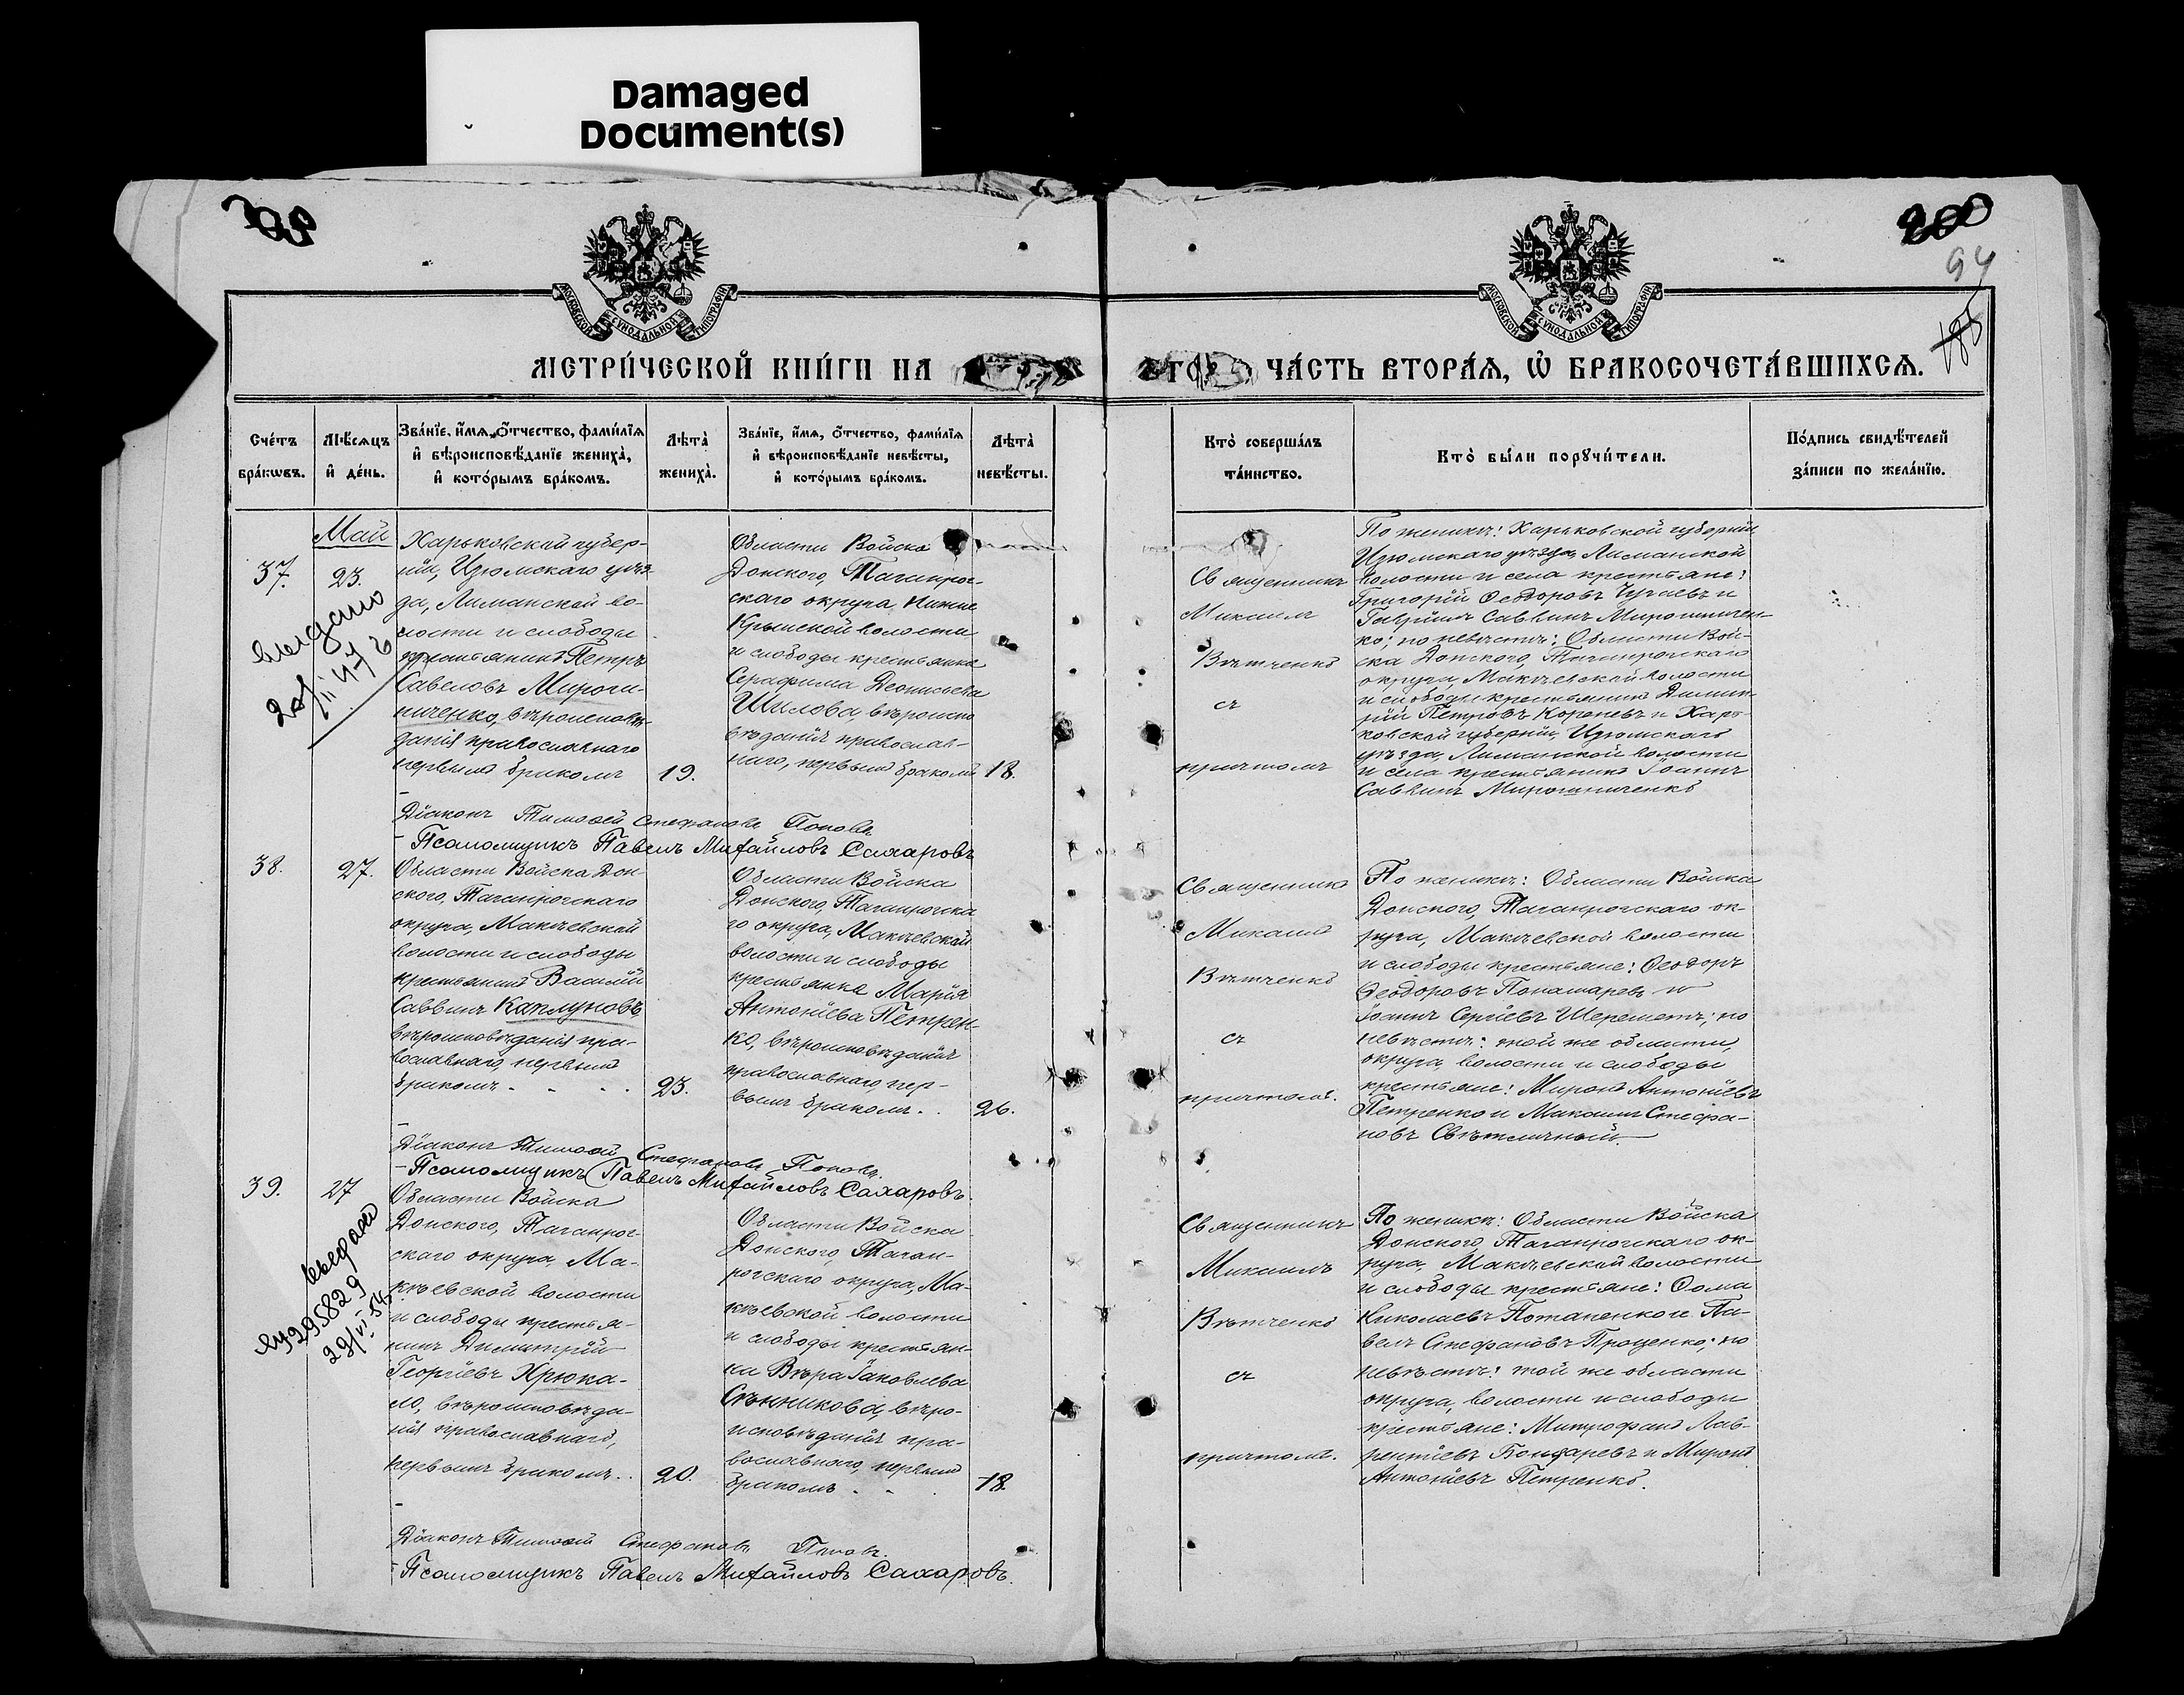 Damaged
Document(s)
200
94
185
МОСКОВСКОЙ СѴНОДАЛЬНОЙ ТИПОГРАФІИ
МОСКОВСКОЙ СѴНОДАЛЬНОЙ ТИПОГРАФІИ
МЕТРИ́ЧЕСКОЙ КНИ́ГИ НА
ЧА́СТЬ ВТОРА́Ѧ, Ѡ҆ БРАКОСОЧЕТА́ВШИХСѦ.
Сче́тъ
бра́кѡвъ.
Мѣ́сѧцъ
и҆ де́нь.
Зва́нїе, и҆́мѧ, ѻ҆́тчество, фами́лїѧ
и҆ вѣроисповѣ́данїе жениха̀,
и҆ кото́рымъ бра́комъ.
Лѣта̀
жениха̀.
Зва́нїе, и҆́мѧ, ѻ҆́тчество, фами́лїѧ
и҆ вѣроисповѣ́данїе невѣ́сты,
и҆ кото́рымъ бра́комъ.
Лѣта̀
невѣ́сты.
Кто̀ соверша́лъ
та́инство.
Кто̀ бы́ли порꙋчи́тели.
По́дпись свидѣ́телей
за́писи по жела́нїю.
Май
37.
23.
выдано
Харьковской губер-
ніи, Изюмскаго уѣз-
да, Лиманской во-
лости и слободы
крестьянинъ Петръ
Савеловъ Мирош-
ниченко, вѣроисповѣ-
данія православнаго
первымъ бракомъ
19.
Области Войска
Донского, Таганрог-
скаго округа, Нижне
Крынской волости
и слободы крестьянка
Серафима Деонисьева
Шилова вѣроиспо
вѣданія православ-
наго, первымъ бракомъ
18.
Священникъ
Михаилъ
Вѣтченко
съ
причтомъ
По женихѣ: Харьковской губерніи,
Изюмскаго уѣзда, Лиманской
волости и села крестьяне:
Григорій Ѳеодоровъ Чугаевъ и
Гавріилъ Саввинъ Мирошничен-
ко; по невѣстѣ: Области Вой-
ска Донского, Таганрогскаго
округа, Макѣевской волости
и слободы крестьянинъ Димит-
рій Петровъ Кореневъ и Харь-
ковской губерніи, Изюмскаго
уѣзда, Лиманской волости
и села крестьянинъ Іоаннъ
Саввинъ Мирошниченко
Діаконъ Тимоѳей Стефановъ Поповъ
Псаломщикъ Павелъ Михайловъ Сахаровъ
38.
27.
Области Войска Дон-
ского, Таганрогскаго
округа, Макѣевской
волости и слободы
крестьянинъ Василій
Саввинъ Каплуновъ,
вѣроисповѣданія пра-
вославнаго, первымъ
бракомъ
23.
Области Войска
Донского, Таганрогска
го округа, Макѣевской
волости и слободы
крестьянка Марія
Антоніева Петрен-
ко, вѣроисповѣданія
православнаго, пер-
вымъ бракомъ.
26.
Священникъ
Михаилъ
Вѣтченко
съ
причтомъ.
По женихѣ: Области Войска
Донского, Таганрогскаго ок-
руга, Макѣевской волости
и слободы крестьяне: Ѳеодоръ
Ѳеодоровъ Понамаревъ и
Іоаннъ Сергіевъ Шереметъ; по
невѣстѣ: той же области,
округа, волости и слободы
крестьяне: Миронъ Антоніевъ
Петренко и Михаилъ Стефа-
новъ Свѣтличный.
Діаконъ Тимоѳей Стефановъ Поповъ.
Псаломщикъ Павелъ Михайловъ Сахаровъ.
39.
27
295829
Области Войска
Донского, Таганрог-
скаго округа, Ма-
кѣевской волости
и слободы крестья-
нинъ Димитрій
Георгіевъ Хрюка-
ло, вѣроисповѣда-
нія православнаго,
первымъ бракомъ.
20.
Области Войска
Донского, Таган-
рогскаго округа, Ма-
кѣевской волости
и слободы крестьян-
ка Вѣра Іаковлева
Сѣнникова, вѣро-
исповѣданія пра-
вославнаго, первымъ
бракомъ
18.
Священникъ
Михаилъ
Вѣтченко
съ
причтомъ.
По женихѣ: Области Войска
Донского, Таганрогскаго ок-
руга, Макѣевской волости
и слободы крестьяне: Ѳома
Николаевъ Потапенко и Па-
велъ Стефановъ Проценко; по
невѣстѣ: той же области
округа, волости и слободы
крестьяне: Митрофанъ Лав-
рентіевъ Бондаревъ и Миронъ
Антоніевъ Петренко.
Діаконъ Тимоѳей Стефановъ Поповъ.
Псаломщикъ Павелъ Михайловъ Сахаровъ.